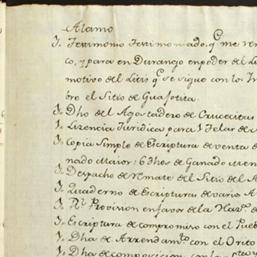 Alamo
J. Terrimonio Terrimoniado, q.e me ven
co, y para en Durango en poder del Li
motivo del Litis q.e se sigue con los In
bro el Sitio de Guajotita.
J. Dho del Agostadero de Crucecitas
J. Lizencia Juridica para 1 Telar de
J. Copia Simple de Escriptura de venta d
nado Maior: 6 Ihos de Ganado Men
J. Despacho de remate del Sitio del A
J. Quaderno de Escripturas de vario
J. Rl Provision en favor de la Haz.da d
J. Escriptura de compromiso con el Pueb
J. Dha de Arrendam.to con el Orito
J. Dha de composicion con la